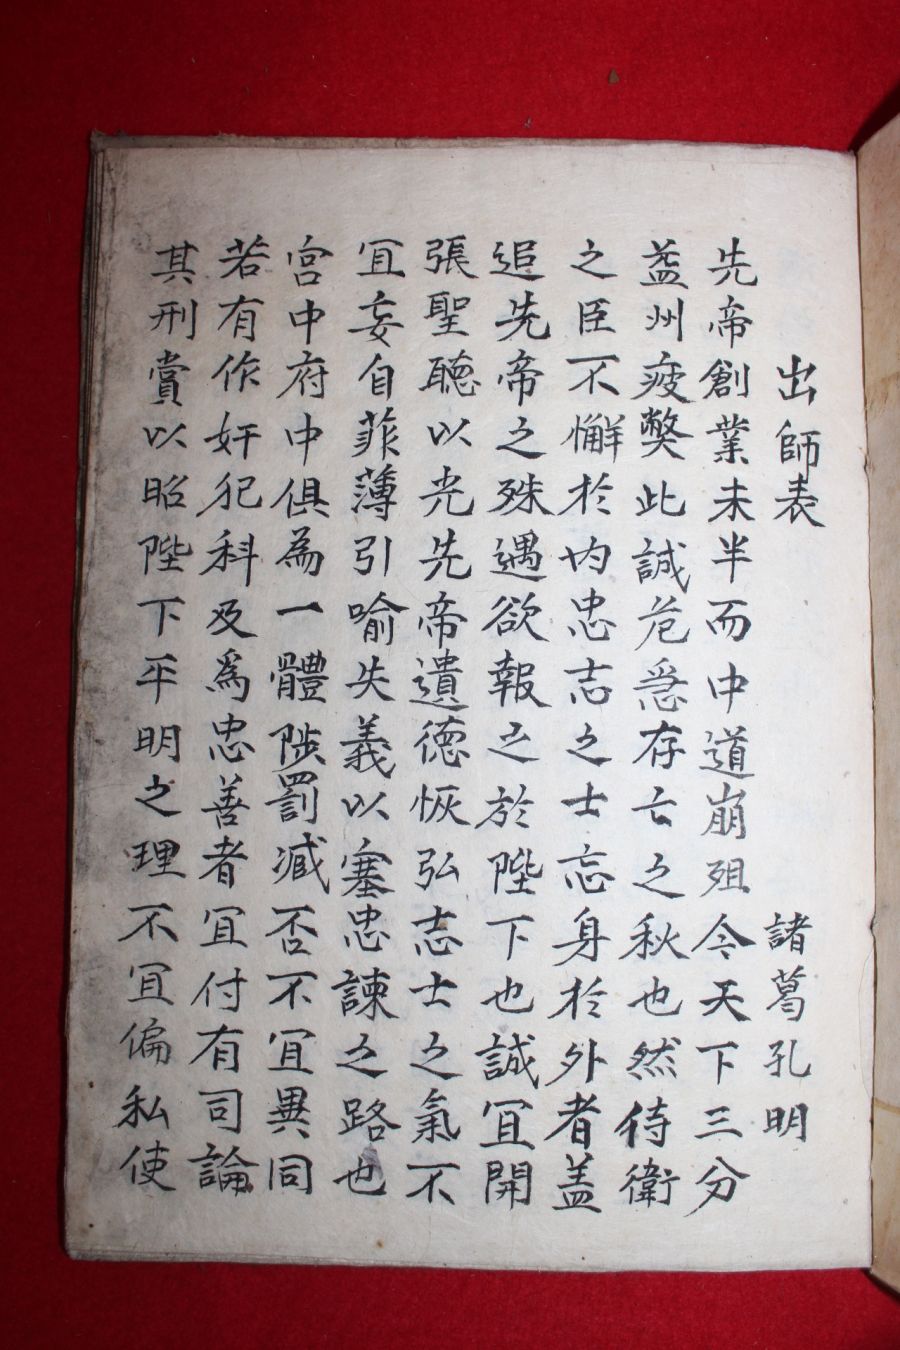 出師表 諸葛孔明
先帝創業未半而中道崩殂今天下三分
益州疲獘此誠危急存亡之秋也然侍衛
之臣不懈於內忠志之士忘身於外者盖
追先帝之殊遇欲報之於陛下也誠冝開
張聖聽以光先帝遺德恢弘志士之氣不
冝妄自菲薄引喻失義以塞忠諫之路也
宮中府中俱為一體陟罰减否不冝異同
若有作奸犯科及爲忠善者冝付有司論
其刑賞以昭陛下平明之理不冝偏私使